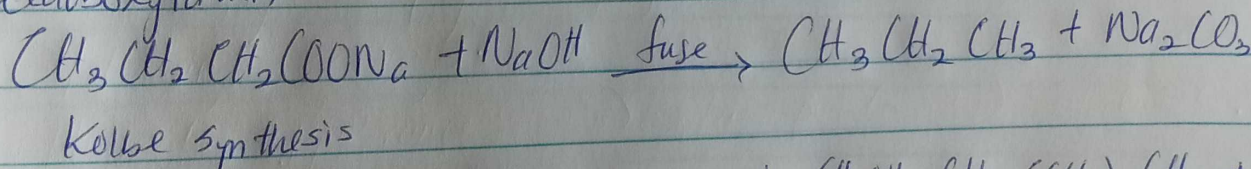 CH₃CH₂CH₂COONa + NaOH fuse → CH₃CH₂CH₃ + Na₂CO₃
Kolbe synthesis